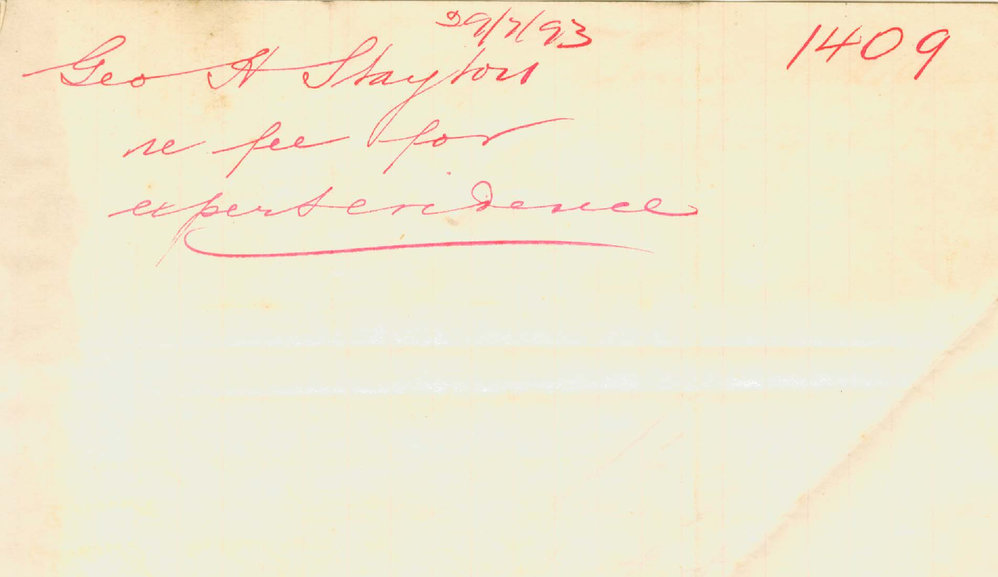 29/7/93
1409
Geo H Stayton
re fee for
expert evidence